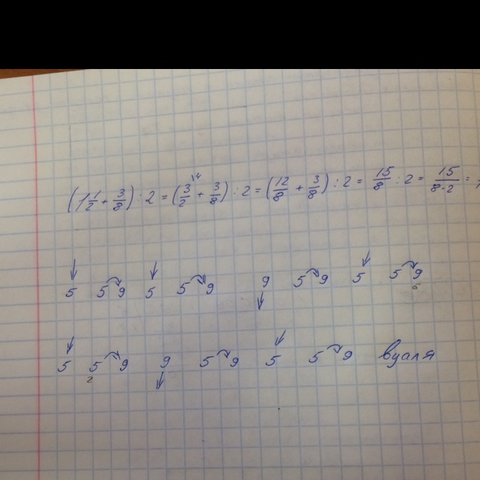 (1 1/2 + 3/8) : 2 = (3/2 \4 + 3/8) : 2 = (12/8 + 3/8) : 2 = 15/8 : 2 = 15/8·2 =
↓5 5⌒9 ↓5 5⌒9 9↓ 5⌒9 ↓5 5⌒9
↓5 5⌒9 9↓ 5⌒9 ↓5 5⌒9 вуаля